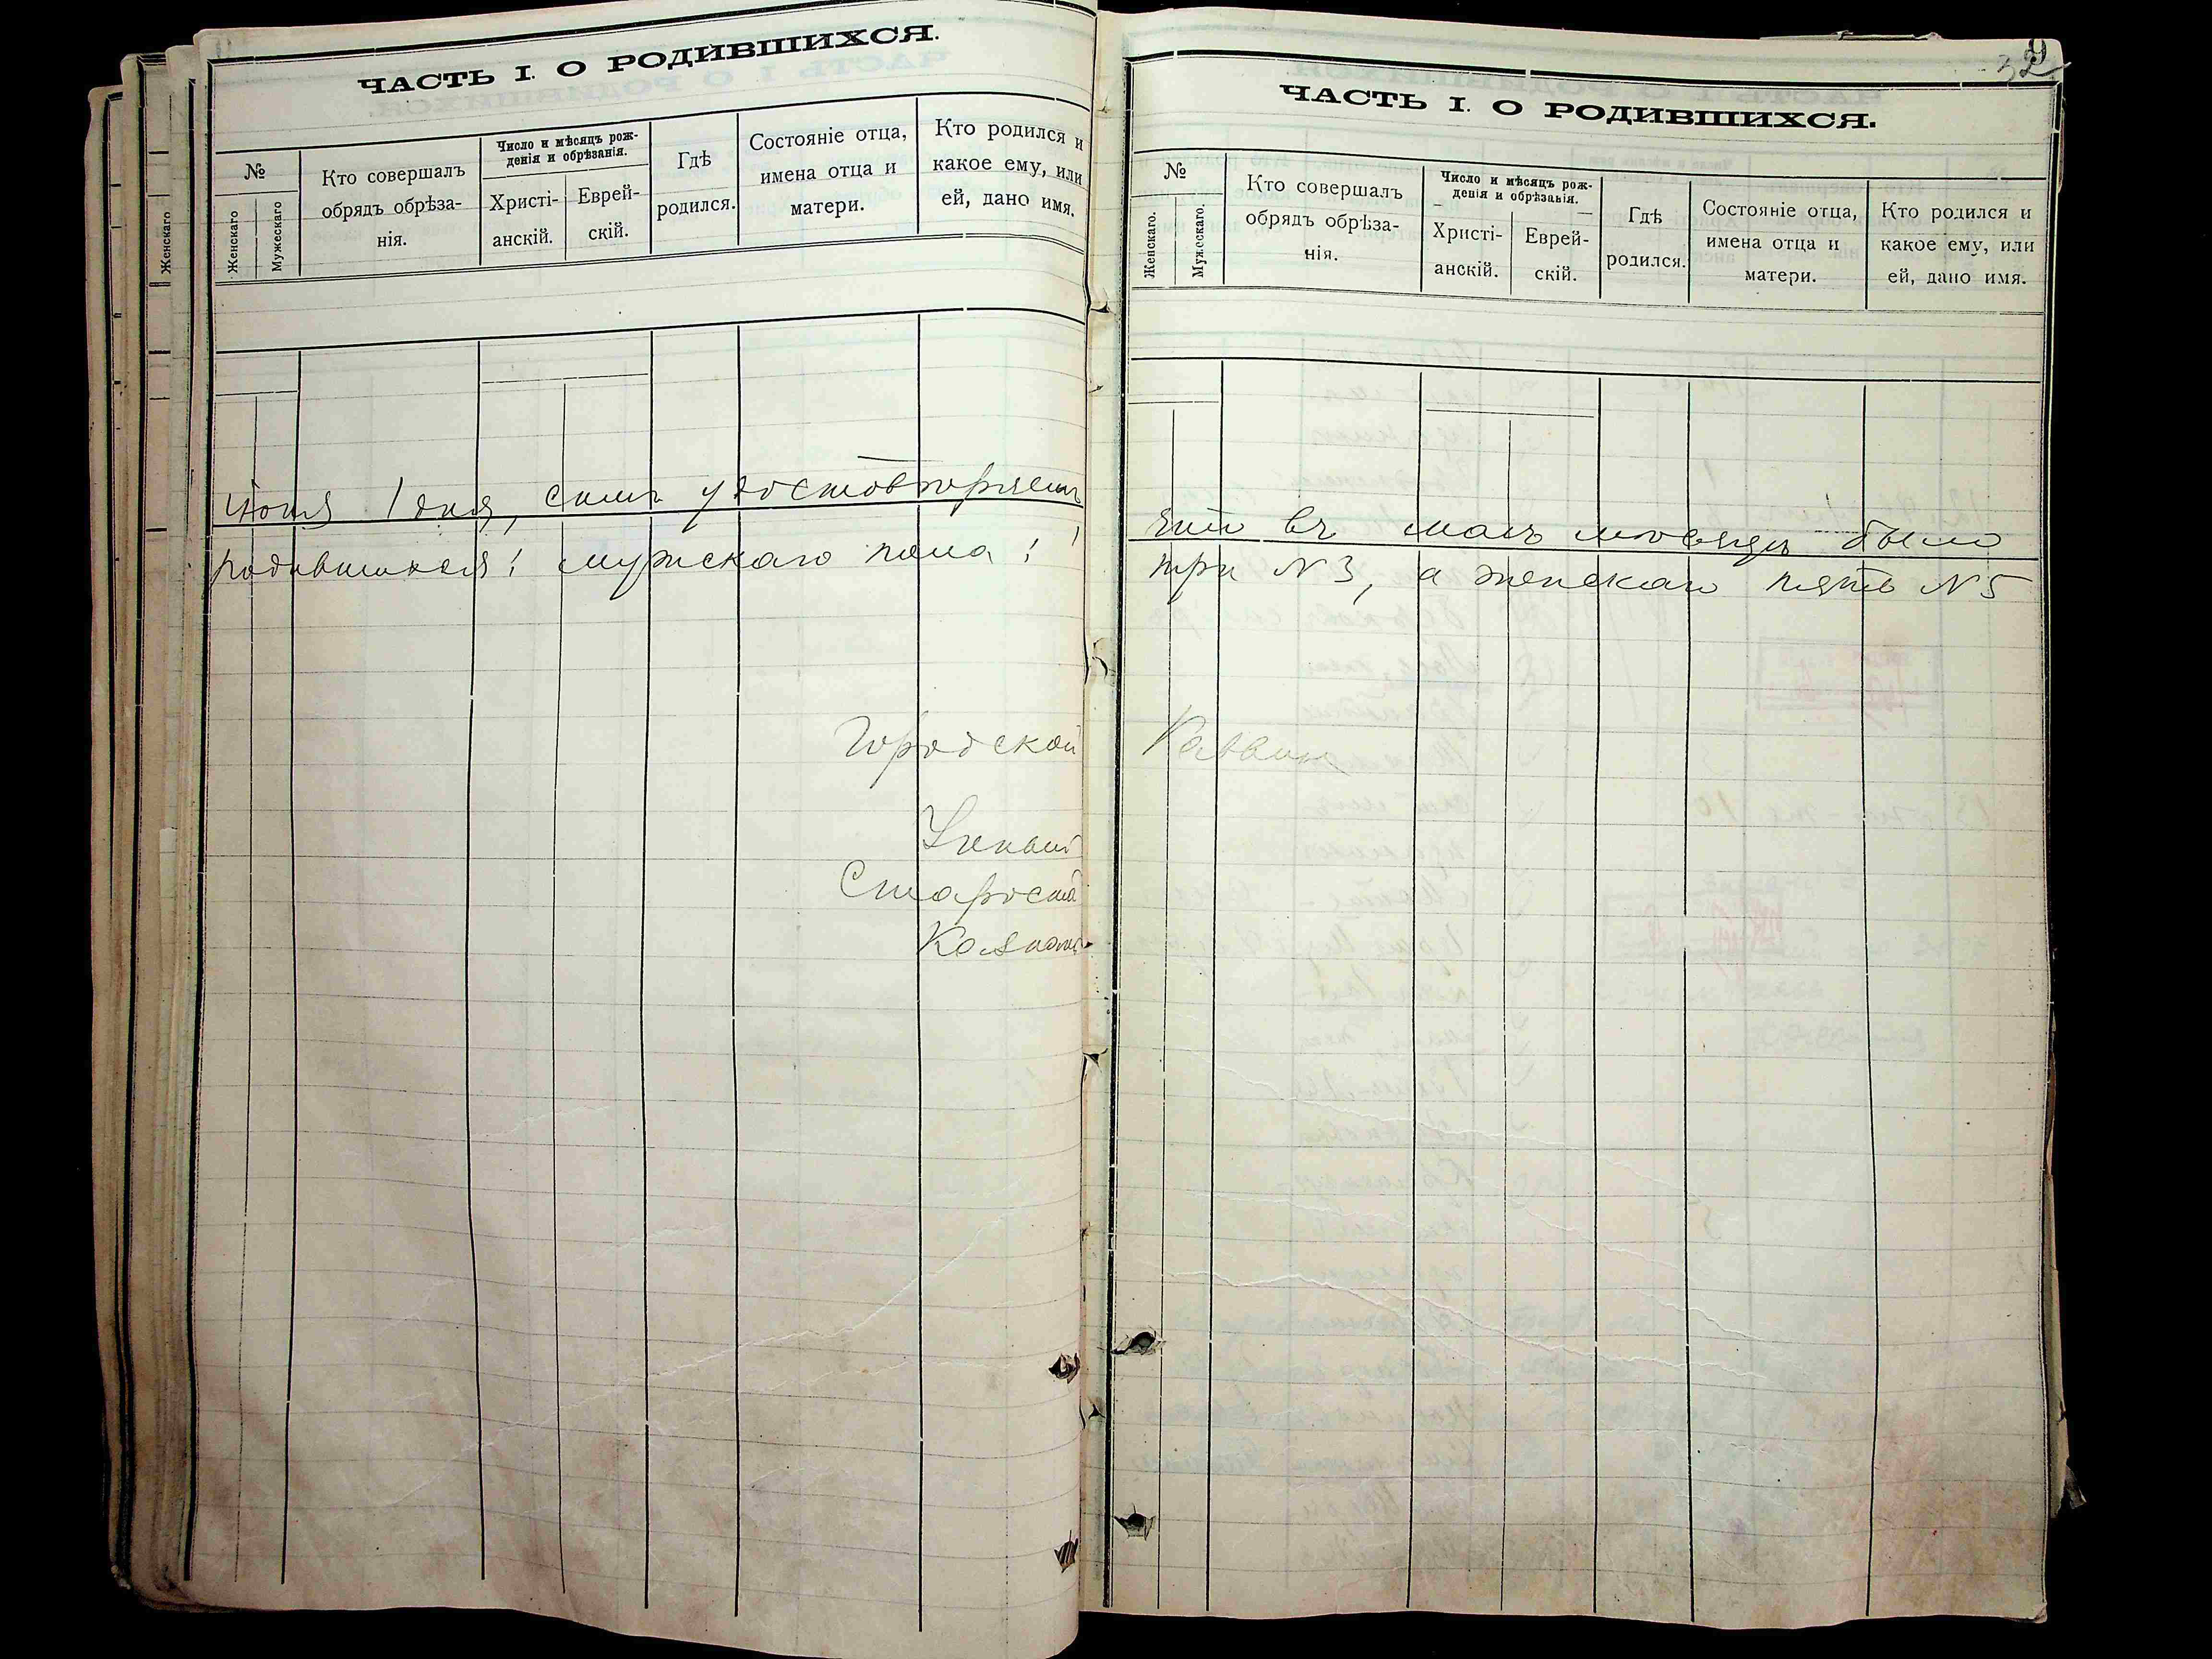 ЧАСТЬ I. О РОДИВШИХСЯ.
№
Женскаго
Мужескаго
Кто совершалъ
обрядъ обрѣза-
нія.
Число и мѣсяцъ рож-
денія и обрѣзанія.
Христі-
анскій.
Еврей-
скій.
Гдѣ
родился.
Состояніе отца,
имена отца и
матери.
Кто родился и
какое ему, или
ей, дано имя.
Июня 1 дня, симъ удостовѣряемъ
родившихся: мужскаго пола:
Городской
Ученый
Староста
Казначей
Женскаго
32
ЧАСТЬ I. О РОДИВШИХСЯ.
№
Женскаго.
Мужескаго.
Кто совершалъ
обрядъ обрѣза-
нія.
Число и мѣсяцъ рож-
денія и обрѣзанія.
Христі-
анскій.
Еврей-
скій.
Гдѣ
родился.
Состояніе отца,
имена отца и
матери.
Кто родился и
какое ему, или
ей, дано имя.
что въ маѣ мѣсяцѣ было
три N 3, а женскаго пять N 5
Раввинъ